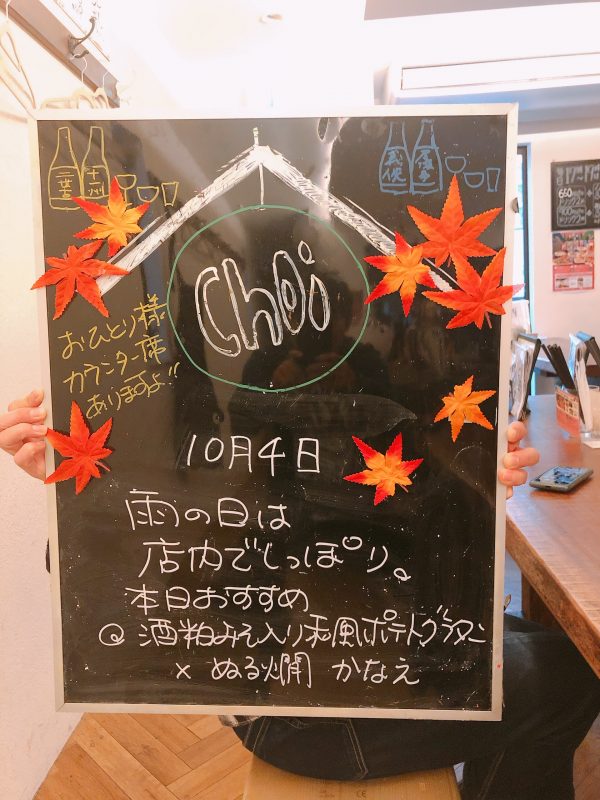 十一州
Choi
おひとり様
カウンター席
ありますよ!!
10月4日
雨の日は
店内でしっぽり。
本日おすすめ
@ 酒粕みそ入り和風ポテトグラタン
× ぬる燗 かなえ